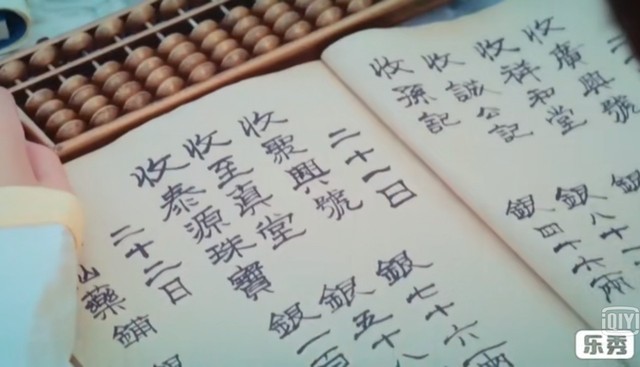 收廣興號
銀
收祥和堂
銀八十一
收誠公記
銀四十六兩
收孫記
二十一日
收聚興號
銀七十六兩
收至真堂
銀五十八
收泰源珠寶
銀一百
二十二日
藥鋪
iQIYI
乐秀